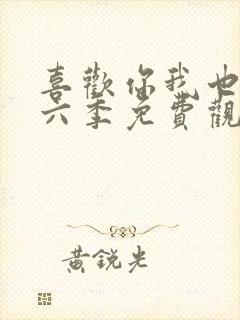 喜歡你我也
六季免費觀
黃銳光